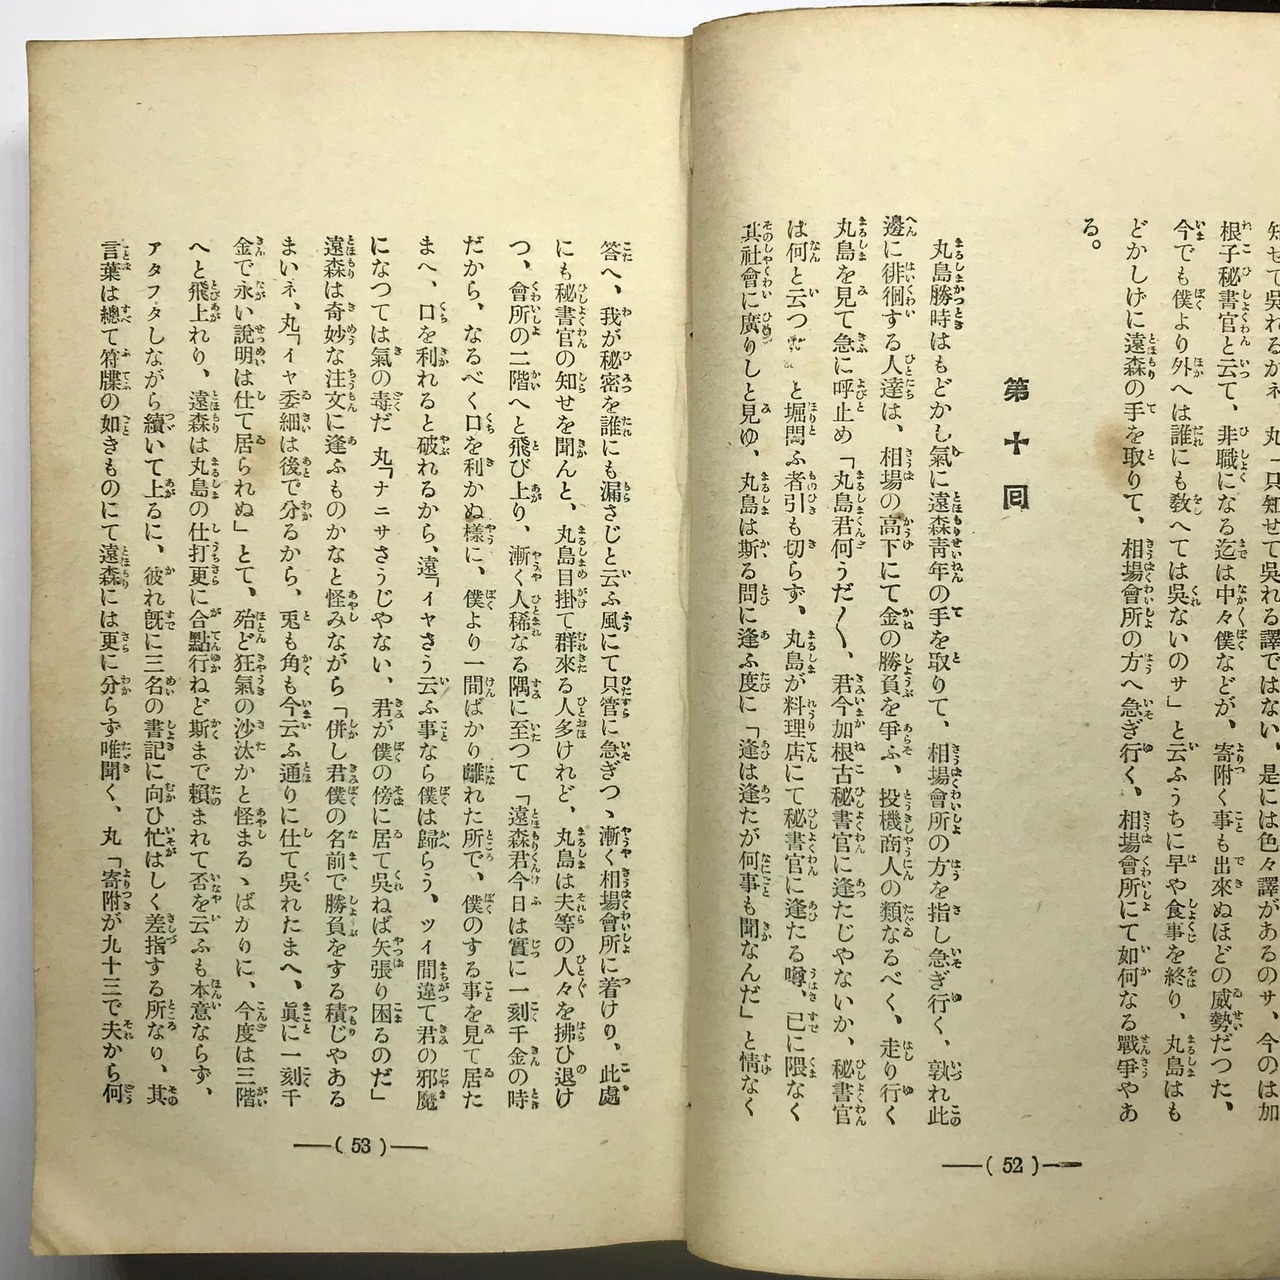 知せて吳れるがネ　丸「只知せて吳れる譯でない、是には色々譯があるのサ、今のは加
根子秘書官と云て、非職になる迄は中々僕などが、寄附く事も出來ぬほどの威勢だつた、
今でも僕より外へは誰にも敎へては吳ないのサ」と云ふうちに早や食事を終り、丸島はも
どかしげに遠森の手を取りて、相場會所の方へ急ぎ行く、相場會所にて如何なる戰爭やあ
る。
第十回
丸島勝時はもどかし氣に遠森靑年の手を取りて、相場會所の方を指し急ぎ行く、孰れ此
邊に徘徊する人達は、相場の高下にて金の勝負を爭ふ、投機商人の類なるべく、走り行く
丸島を見て急に呼止め「丸島君何うだ〱、君今加根古秘書官に逢たじやないか、秘書官
は何と云つ　と堀問ふ者引も切らず、丸島が料理店にて秘書官に逢たる噂、已に隈なく
其社會に廣りしと見ゆ、丸島は斯る問に逢ふ度に「逢は逢たが何事も聞なんだ」と情なく
(52)
答へ、我が秘密を誰にも漏さじと云ふ風にて只管に急ぎつゝ漸く相場會所に着けり。此處
にも秘書官の知せを聞んと、丸島目掛て群來る人多けれど、丸島は夫等の人々を拂ひ退け
つ、會所の二階へと飛び上り、漸く人稀なる隅に至つて「遠森君今日は實に一刻千金の時
だから、なるべく口を利かぬ樣に、僕より一間ばかり離れた所で、僕のする事を見て居た
まへ、口を利れると破れるから、遠「イヤさう云ふ事なら僕は歸らう、ツイ間違て君の邪魔
になつては氣の毒だ　丸「ナニサさうじやない、君が僕の傍に居て吳ねば矢張り困るのだ」
遠森は奇妙な注文に逢ふものかなと怪みながら「併し君僕の名前で勝負をする積じやある
まいネ、丸「イヤ委細は後で分るから、兎も角も今云ふ通りに仕て吳れたまへ、眞に一刻千
金で永い說明は仕て居られぬ」とて、殆ど狂氣の沙汰かと怪まるゝばかりに、今度は三階
へと飛上れり、遠森は丸島の仕打更に合點行ねど斯まで賴まれて否を云ふも本意ならず、
アタフタしながら續いて上るに、彼れ旣に三名の書記に向ひ忙はしく差指する所なり、其
言葉は總て符牒の如きものにて遠森には更に分らず唯聞く、丸「寄附が九十三で夫から何
(53)